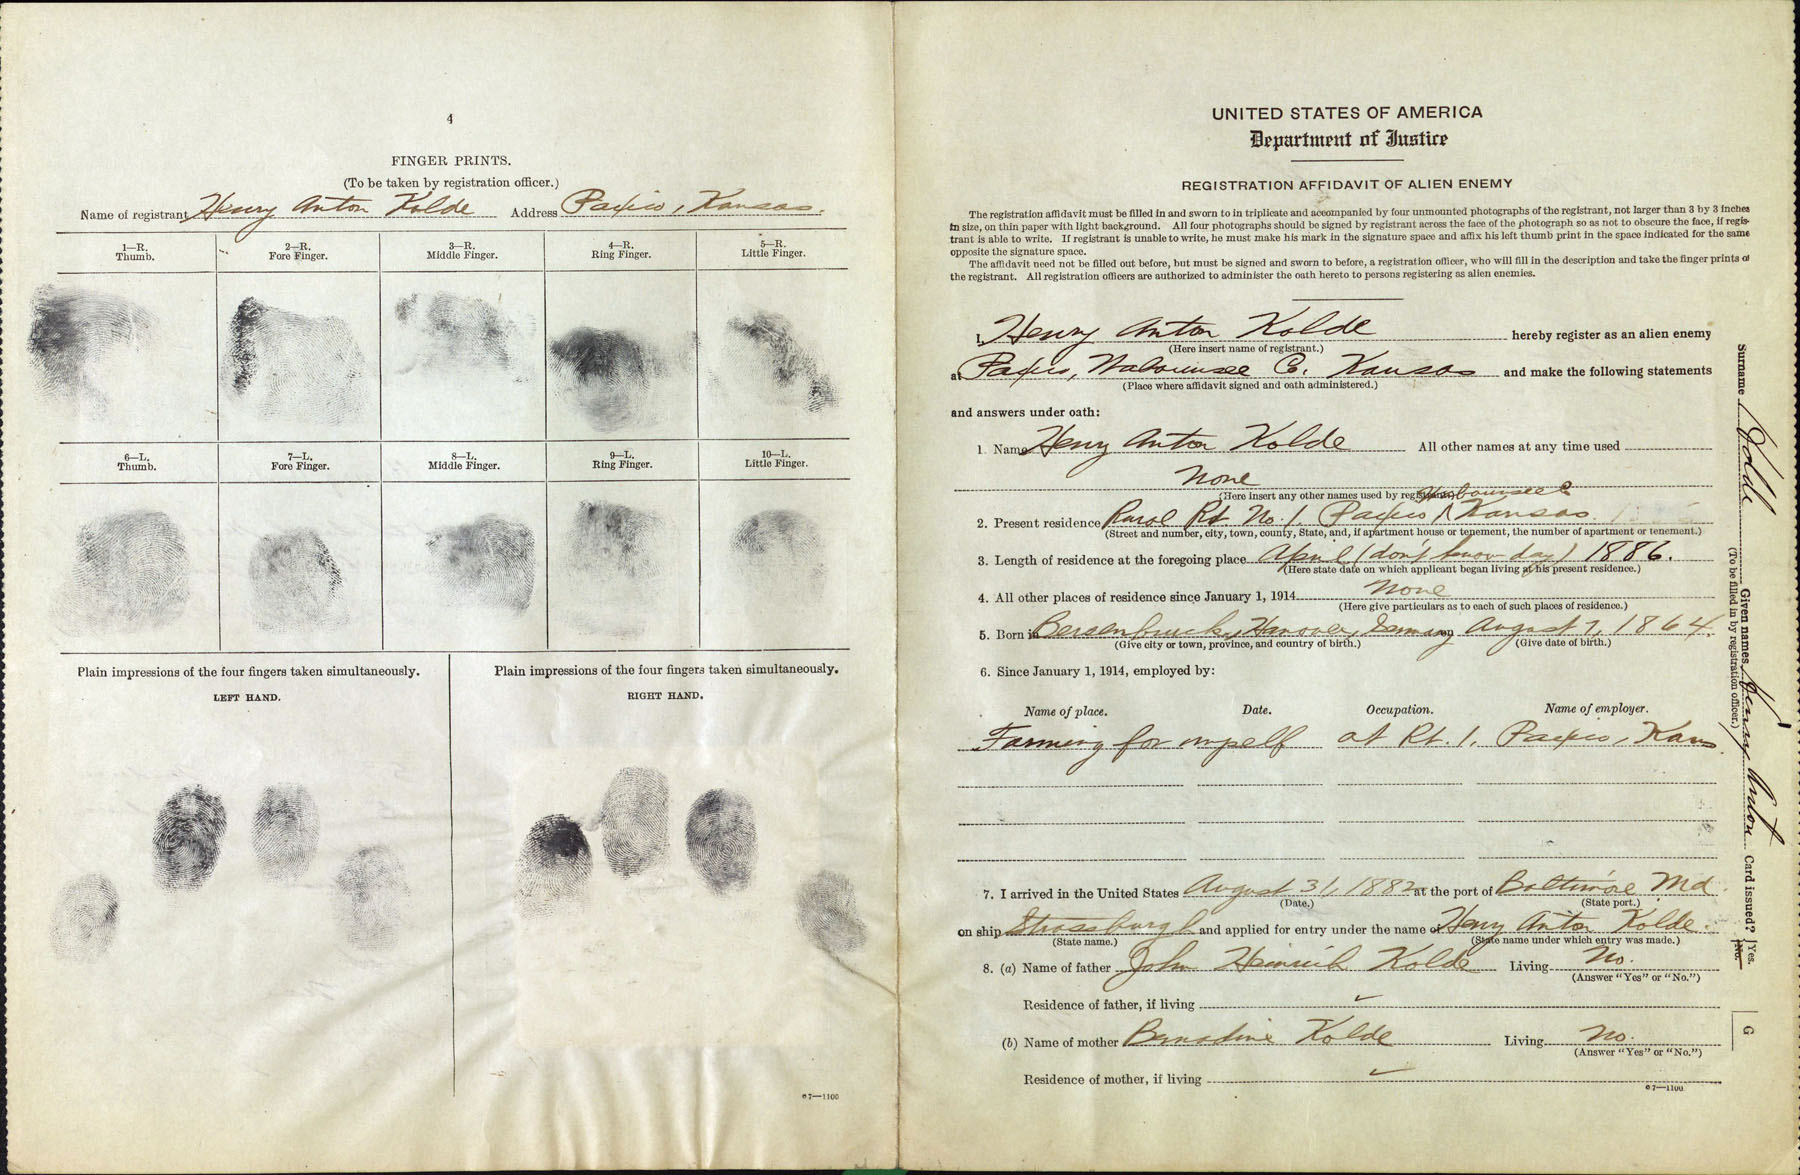 4
FINGER PRINTS.
(To be taken by registration officer.)
Name of registrant Henry Anton Kolde Address Paxico, Kansas.
1—R. Thumb. 2—R. Fore Finger. 3—R. Middle Finger. 4—R. Ring Finger. 5—R. Little Finger.
6—L. Thumb. 7—L. Fore Finger. 8—L. Middle Finger. 9—L. Ring Finger. 10—L. Little Finger.
Plain impressions of the four fingers taken simultaneously. Plain impressions of the four fingers taken simultaneously.
LEFT HAND. RIGHT HAND.
c7—1100
UNITED STATES OF AMERICA
Department of Justice
REGISTRATION AFFIDAVIT OF ALIEN ENEMY
The registration affidavit must be filled in and sworn to in triplicate and accompanied by four unmounted photographs of the registrant, not larger than 3 by 3 inches
in size, on thin paper with light background. All four photographs should be signed by registrant across the face of the photograph so as not to obscure the face, if regis-
trant is able to write. If registrant is unable to write, he must make his mark in the signature space and affix his left thumb print in the space indicated for the same
opposite the signature space.
The affidavit need not be filled out before, but must be signed and sworn to before, a registration officer, who will fill in the description and take the finger prints of
the registrant. All registration officers are authorized to administer the oath hereto to persons registering as alien enemies.
I, Henry Anton Kolde hereby register as an alien enemy
(Here insert name of registrant.)
at Paxico, Wabaunsee Co. Kansas and make the following statements
(Place where affidavit signed and oath administered.)
and answers under oath:
1. Name Henry Anton Kolde All other names at any time used
None
(Here insert any other names used by registrant.)
Wabaunsee Co
2. Present residence Rural Rt. No. 1. Paxico, Kansas
(Street and number, city, town, county, State, and, if apartment house or tenement, the number of apartment or tenement.)
3. Length of residence at the foregoing place April (don't know day) 1886.
(Here state date on which applicant began living at his present residence.)
4. All other places of residence since January 1, 1914 None
(Here give particulars as to each of such places of residence.)
5. Born in Bersenbruck, Hanover, Germany August 7, 1864.
(Give city or town, province, and country of birth.) (Give date of birth.)
6. Since January 1, 1914, employed by:
Name of place. Date. Occupation. Name of employer.
Farming for myself at Rt. 1. Paxico, Kans.
7. I arrived in the United States August 31, 1882 at the port of Baltimore Md.
(Date.) (State port.)
on ship Strassburgh and applied for entry under the name of Henry Anton Kolde.
(State name.) (State name under which entry was made.)
8. (a) Name of father John Heinrich Kolde Living No.
(Answer "Yes" or "No.")
Residence of father, if living
(b) Name of mother Bernadine Kolde Living No.
(Answer "Yes" or "No.")
Residence of mother, if living
c7—1100
Surname Kolde Given names Henry Anton Card issued? Yes. No.
(To be filled in by registration officer.)
G